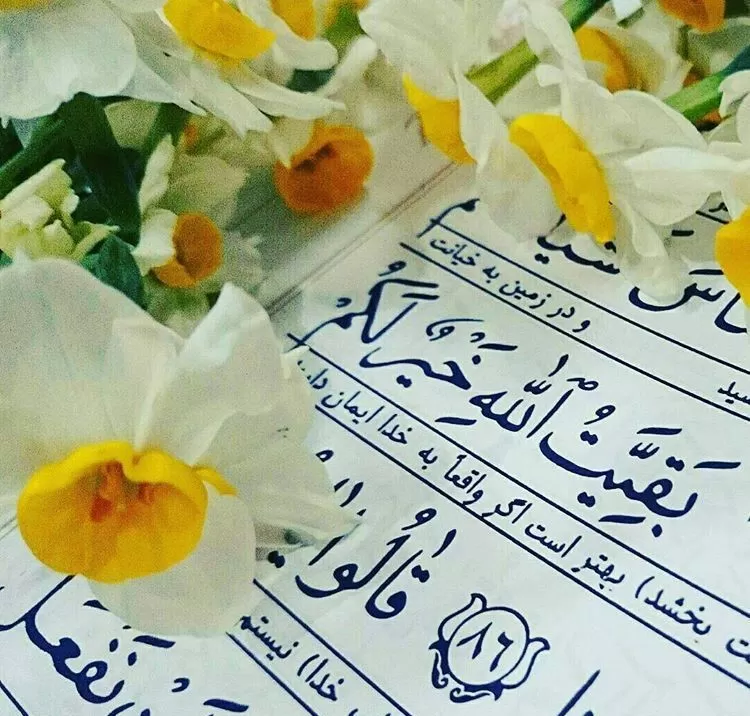 و در زمین به خیانت
بَقِيَّتُ اللّٰهِ خَيْرٌ لَكُمْ
بخشد) بهتر است اگر واقعاً به خدا ایمان
۸۶ قالُوا
خدا) نیستم
نَفْعَلَ